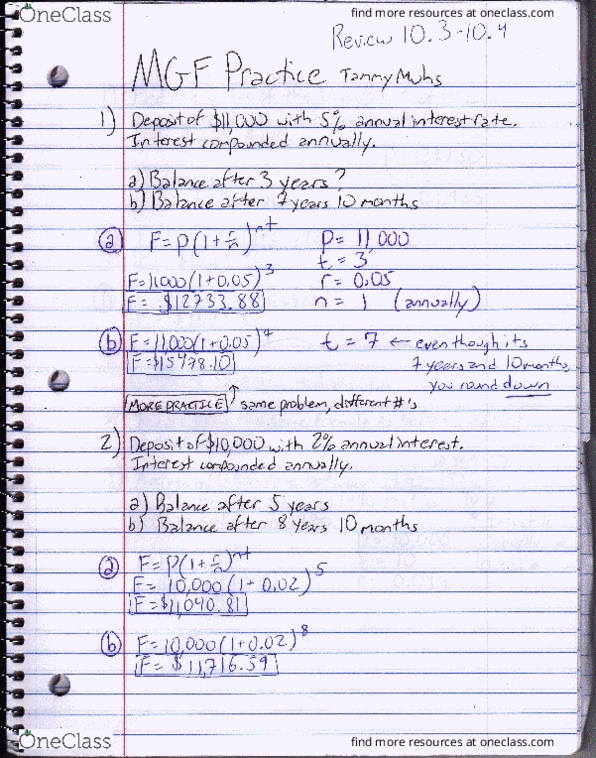 OneClass
find more resources at oneclass.com
Review 10.3-10.4
MGF Practice Tammy Muhs
1) Deposit of $11,000 with 5% annual interest rate.
Interest compounded annually.
a) Balance after 3 years?
b) Balance after 7 years 10 months
a F=P(1+r/n)^nt P= 11,000
t= 3
F=11000(1+0.05)^3 r= 0.05
F= $12733.88 n= 1 (annually)
b F=11000(1+0.05)^7 t= 7 ← even though its
F=$15478.10 7 years and 10 months,
you round down
MORE PRACTICE ↑ same problem, different #'s
2) Deposit of $10,000 with 2% annual interest.
Interest compounded annually.
a) Balance after 5 years
b) Balance after 8 years 10 months
a F=P(1+r/n)^nt
F= 10,000(1+0.02)^5
F=$11,040.81
b F=10,000(1+0.02)^8
F= $11,716.59
OneClass
find more resources at oneclass.com